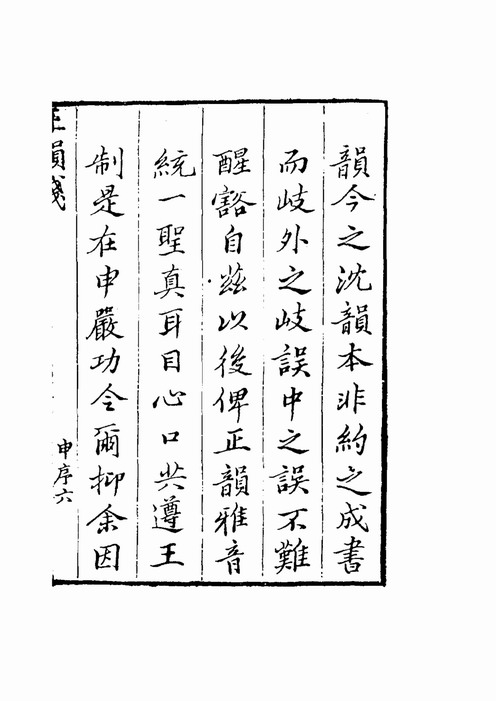 韻今之沈韻本非約之成書
而岐外之岐誤中之誤不難
醒豁自茲以後俾正韻雅音
統一聖真耳目心口共遵王
制是在申嚴功令爾抑余因
韻箋
申序六